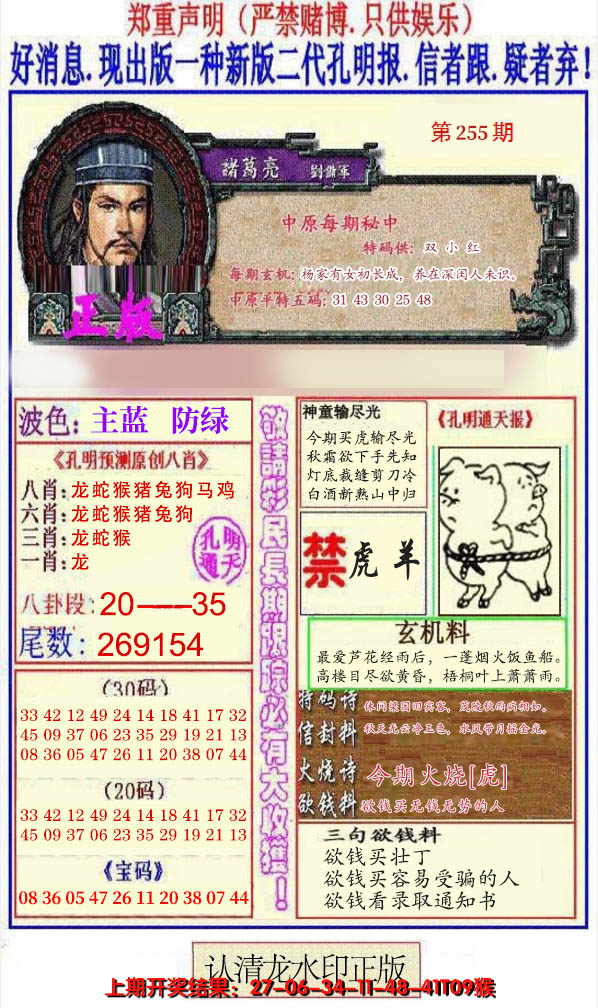 郑重声明（严禁赌博.只供娱乐）
好消息.现出版一种新版二代孔明报.信者跟.疑者弃!
第255期
諸葛亮 劉備軍
中原每期秘中
特码供：双小红
每期玄机：杨家有女初长成，养在深闺人未识。
中原平特五码：31 43 30 25 48
正版
波色：主蓝 防绿
《孔明预测原创八肖》
八肖：龙蛇猴猪兔狗马鸡
六肖：龙蛇猴猪兔狗
三肖：龙蛇猴
一肖：龙
孔明
通天
八卦段：20——35
尾数：269154
（30码）
33 42 12 49 24 14 18 41 17 32
45 09 37 06 23 35 29 19 21 13
08 36 05 47 26 11 20 38 07 44
（20码）
33 42 12 49 24 14 18 41 17 32
45 09 37 06 23 35 29 19 21 13
《宝码》
08 36 05 47 26 11 20 38 07 44
敬請彩民長期跟踪必有大收獲！
神童输尽光
今期买虎输尽光
秋霜欲下手先知
灯底裁缝剪刀冷
白酒新熟山中归
《孔明通天报》
禁 虎 羊
玄机料
最爱芦花经雨后，一蓬烟火饭鱼船。
高楼目尽欲黄昏，梧桐叶上萧萧雨。
特码诗
信封料
休问梁园旧宾客，茂陵秋雨病相如。
秋天无云净玉色，水风带月摇金光。
火烧诗 今期火烧[虎]
欲钱料 欲钱买无钱无势的人
三句欲钱料
欲钱买壮丁
欲钱买容易受骗的人
欲钱看录取通知书
认清龙水印正版
上期开奖结果：27-06-34-11-48-41T09猴